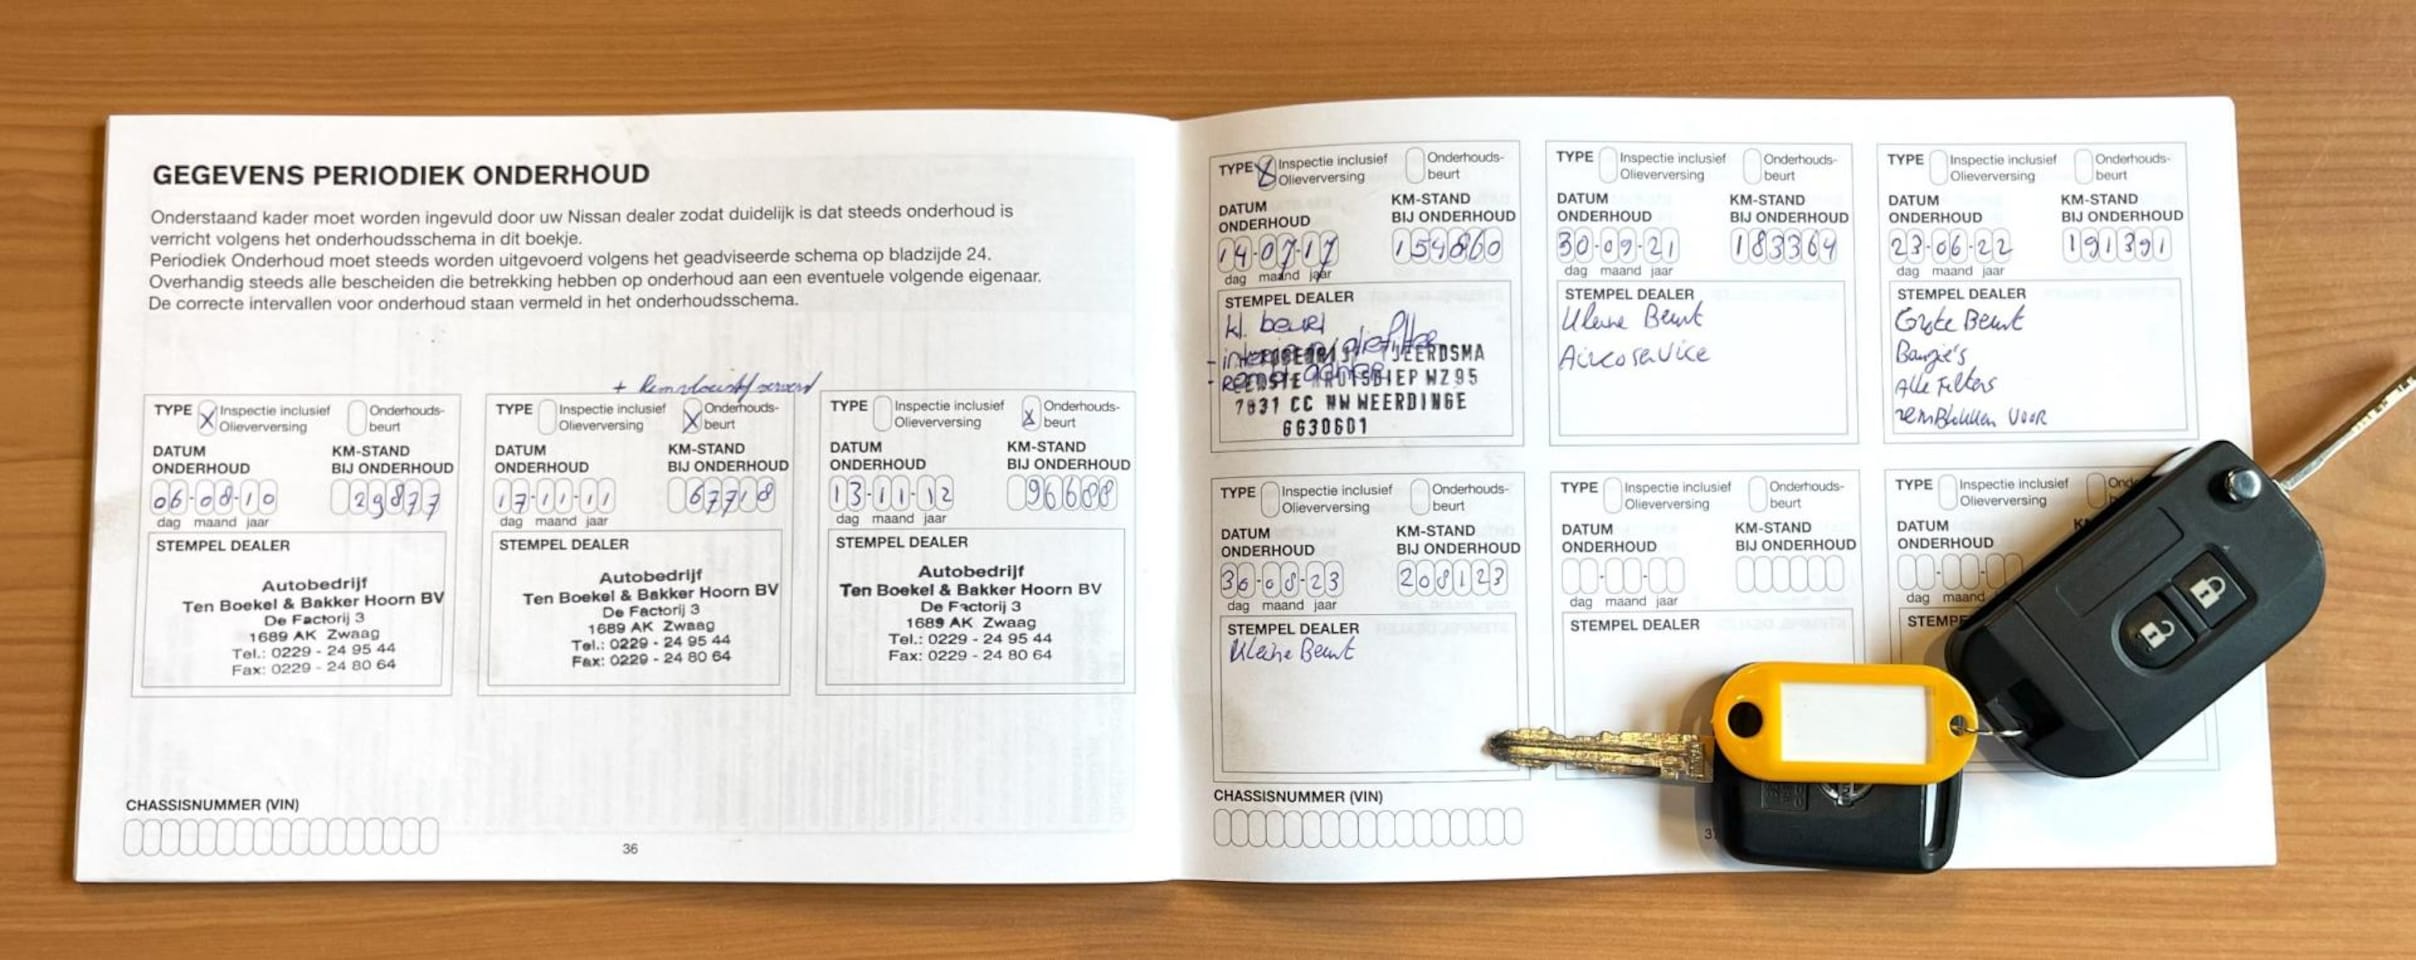 GEGEVENS PERIODIEK ONDERHOUD
Onderstaand kader moet worden ingevuld door uw Nissan dealer zodat duidelijk is dat steeds onderhoud is
verricht volgens het onderhoudsschema in dit boekje.
Periodiek Onderhoud moet steeds worden uitgevoerd volgens het geadviseerde schema op bladzijde 24.
Overhandig steeds alle bescheiden die betrekking hebben op onderhoud aan een eventuele volgende eigenaar.
De correcte intervallen voor onderhoud staan vermeld in het onderhoudsschema.
TYPE X Inspectie inclusief Onderhouds-
Olieverversing beurt
DATUM KM-STAND
ONDERHOUD BIJ ONDERHOUD
06-08-10 29877
dag maand jaar
STEMPEL DEALER
Autobedrijf
Ten Boekel & Bakker Hoorn BV
De Factorij 3
1689 AK Zwaag
Tel.: 0229 - 24 95 44
Fax: 0229 - 24 80 64
+ Remvloeistof
TYPE Inspectie inclusief X Onderhouds-
Olieverversing beurt
DATUM KM-STAND
ONDERHOUD BIJ ONDERHOUD
17-11-11 67718
dag maand jaar
STEMPEL DEALER
Autobedrijf
Ten Boekel & Bakker Hoorn BV
De Factorij 3
1689 AK Zwaag
Tel.: 0229 - 24 95 44
Fax: 0229 - 24 80 64
TYPE Inspectie inclusief X Onderhouds-
Olieverversing beurt
DATUM KM-STAND
ONDERHOUD BIJ ONDERHOUD
13-11-12 96688
dag maand jaar
STEMPEL DEALER
Autobedrijf
Ten Boekel & Bakker Hoorn BV
De Factorij 3
1689 AK Zwaag
Tel.: 0229 - 24 95 44
Fax: 0229 - 24 80 64
CHASSISNUMMER (VIN)
36
TYPE X Inspectie inclusief Onderhouds-
Olieverversing beurt
DATUM KM-STAND
ONDERHOUD BIJ ONDERHOUD
14-07-17 154860
dag maand jaar
STEMPEL DEALER
kl. beurt
TJEERDSMA
WZ 95
7831 CC NW WEERDINGE
6630601
TYPE Inspectie inclusief Onderhouds-
Olieverversing beurt
DATUM KM-STAND
ONDERHOUD BIJ ONDERHOUD
30-09-21 183364
dag maand jaar
STEMPEL DEALER
Kleine Beurt
Aircoservice
TYPE Inspectie inclusief Onderhouds-
Olieverversing beurt
DATUM KM-STAND
ONDERHOUD BIJ ONDERHOUD
23-06-22 191391
dag maand jaar
STEMPEL DEALER
Grote Beurt
Bougie's
Alle Filters
remBlokken VOOR
TYPE Inspectie inclusief Onderhouds-
Olieverversing beurt
DATUM KM-STAND
ONDERHOUD BIJ ONDERHOUD
30-08-23 208123
dag maand jaar
STEMPEL DEALER
Kleine Beurt
TYPE Inspectie inclusief Onderhouds-
Olieverversing beurt
DATUM KM-STAND
ONDERHOUD BIJ ONDERHOUD
dag maand jaar
STEMPEL DEALER
TYPE Inspectie inclusief
Olieverversing
DATUM
ONDERHOUD
dag maand
CHASSISNUMMER (VIN)